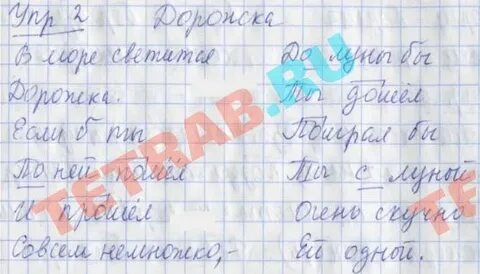 Упр 2 Дорожка
В море светится
Дорожка.
Если б ты
По ней пошёл
И прошёл
Совсем немножко,-
До луны бы
Ты дошёл
Поиграл бы
Ты с луной
Очень скучно
Ей одной.
TETRAB.RU
TETRAB.RU